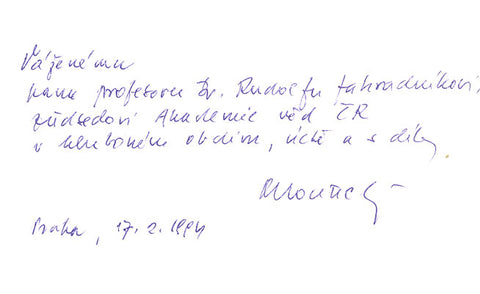 Váženému
panu profesoru Dr. Rudolfu Zahradníkovi,
předsedovi Akademie věd ČR
v hlubokém obdivu, úctě a s díky

Praha, 17. 2. 1994